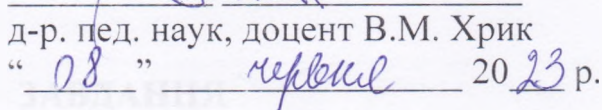 д-р. пед. наук, доцент В.М. Хрик
“ 08 ” червня 20 23 р.